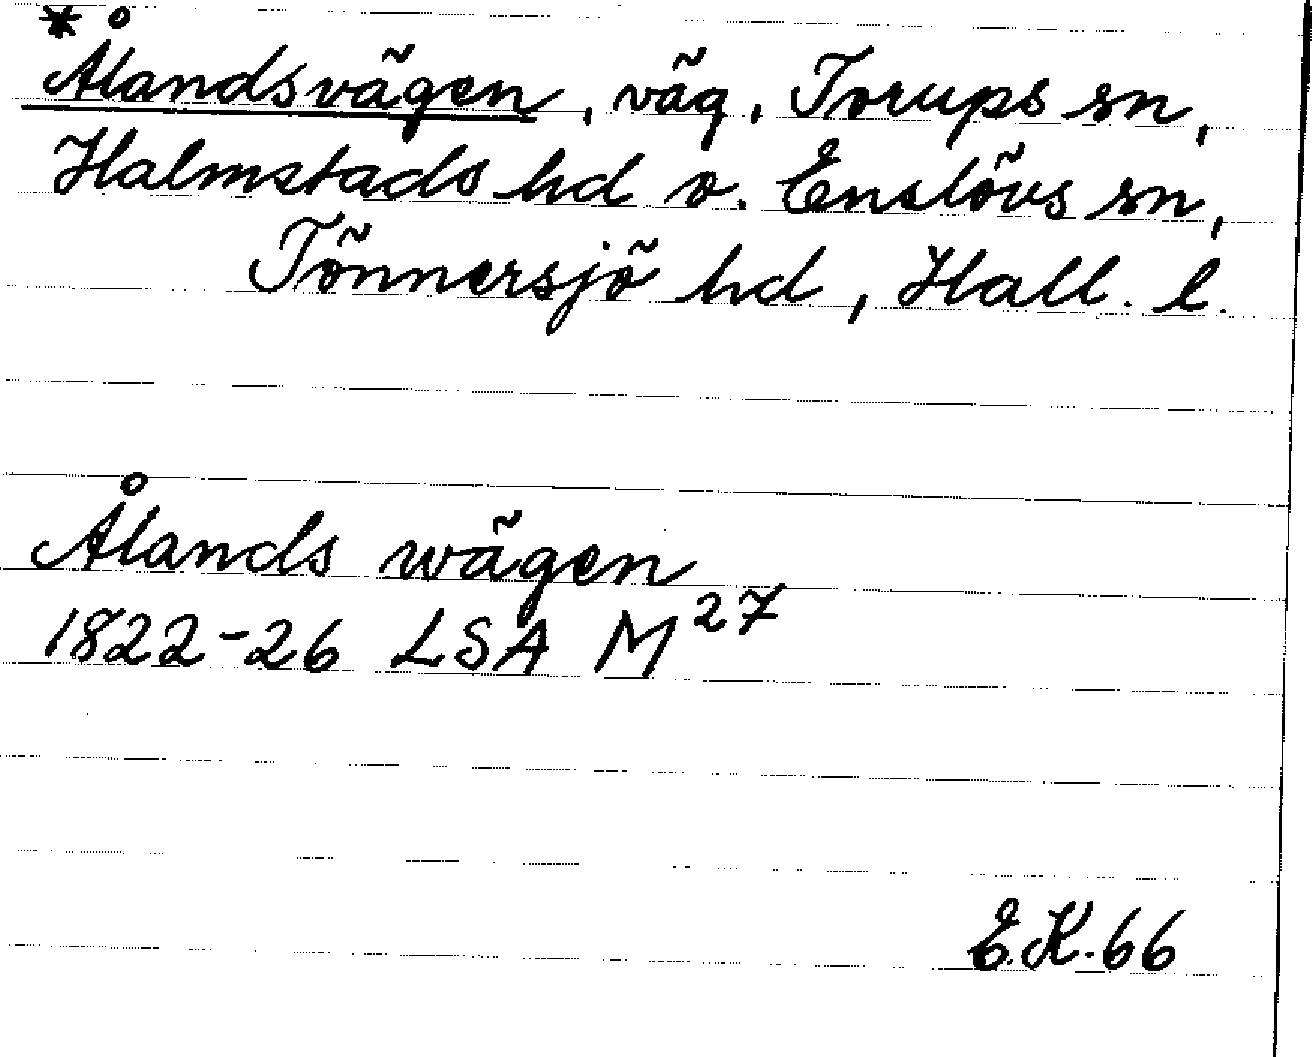 *Ålandsvägen, väg, Torups sn,
Halmstads hd o. Enslövs sn,
Tönnersjö hd, Hall. l.
Ålands wägen
1822-26 LSA M²⁷
E.K. 66